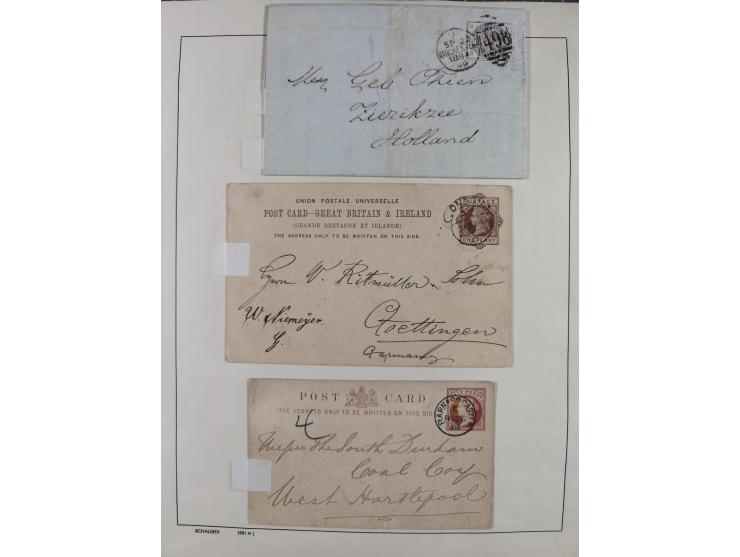 SP 22
MANCHESTER
498
Messrs Geb Thien
Zierikzee
Holland
UNION POSTALE UNIVERSELLE
POST CARD—GREAT BRITAIN & IRELAND
(GRANDE BRETAGNE ET IRLANDE)
THE ADDRESS ONLY TO BE WRITTEN ON THIS SIDE.
POSTAGE
ONE PENNY
W. Ritmüller & Sohn
W. Niemeyer
Goettingen
Germany
POST CARD
THE ADDRESS ONLY TO BE WRITTEN ON THIS SIDE
4
the South Durham
Coal Coy
West Hartlepool
SCHAUBEK